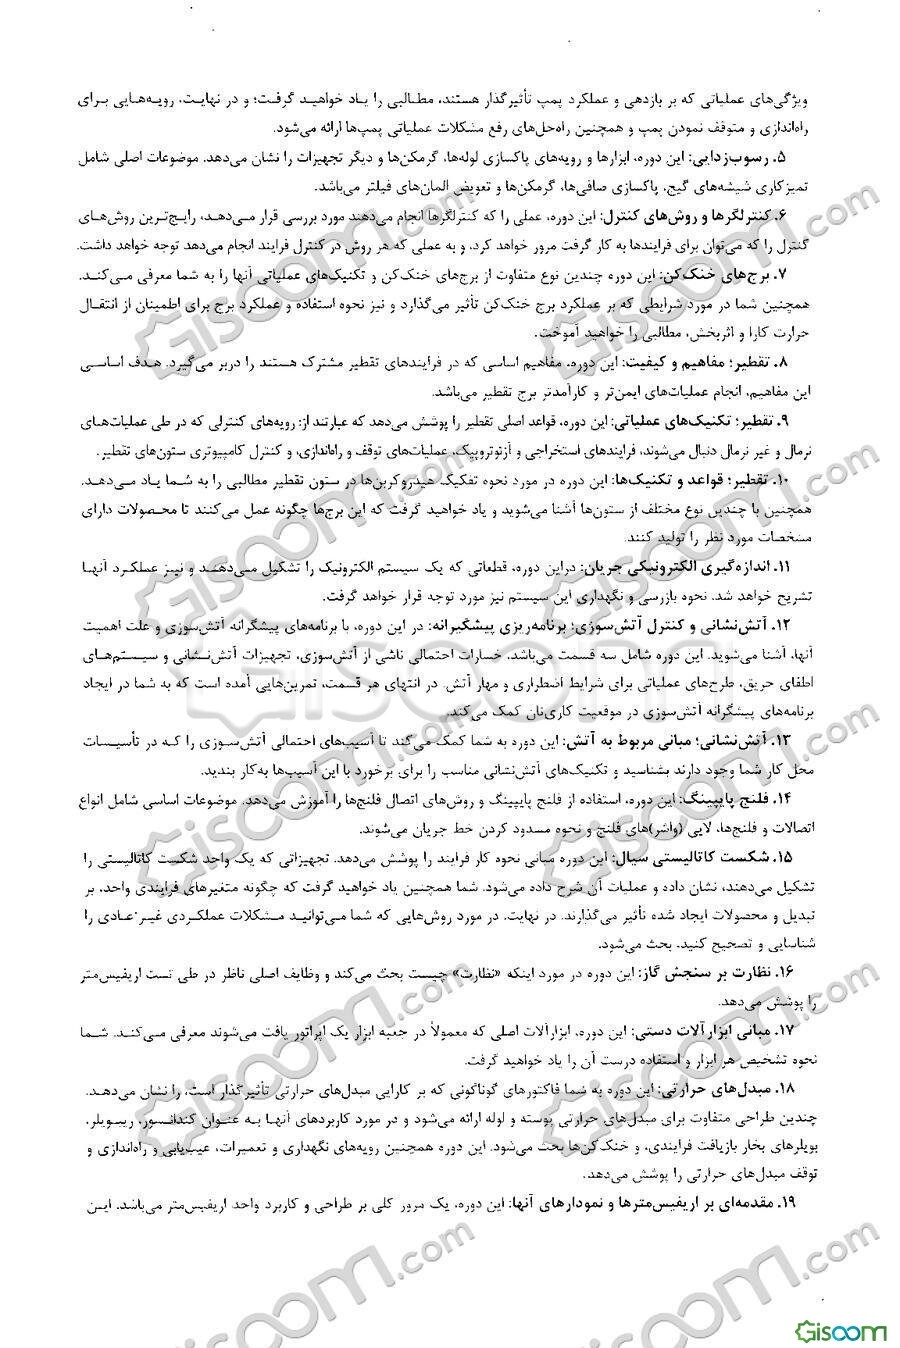 ویژگی‌های عملیاتی که بر بازدهی و عملکرد پمپ تأثیرگذار هستند، مطالبی را یاد خواهید گرفت؛ و در نهایت، رویه‌هایی برای
راه‌اندازی و متوقف نمودن پمپ و همچنین راه‌حل‌های رفع مشکلات عملیاتی پمپ‌ها ارائه می‌شود.
۵. رسوب‌زدایی: این دوره، ابزارها و رویه‌های پاکسازی لوله‌ها، گرمکن‌ها و دیگر تجهیزات را نشان می‌دهد. موضوعات اصلی شامل
تمیزکاری شیشه‌های گیج، پاکسازی صافی‌ها، گرمکن‌ها و تعویض المان‌های فیلتر می‌باشد.
۶. کنترلگرها و روش‌های کنترل: این دوره، عملی را که کنترلگرها انجام می‌دهند مورد بررسی قرار می‌دهد، رایج‌ترین روش‌های
کنترل را که می‌توان برای فرایندها به کار گرفت مرور خواهد کرد، و به عملی که هر روش در کنترل فرایند انجام می‌دهد توجه خواهد داشت.
۷. برج‌های خنک‌کن: این دوره چندین نوع متفاوت از برج‌های خنک‌کن و تکنیک‌های عملیاتی آنها را به شما معرفی می‌کند.
همچنین شما در مورد شرایطی که بر عملکرد برج خنک‌کن تأثیر می‌گذارد و نیز نحوه استفاده و عملکرد برج برای اطمینان از انتقال
حرارت کارا و اثربخش، مطالبی را خواهید آموخت.
۸. تقطیر؛ مفاهیم و کیفیت: این دوره، مفاهیم اساسی که در فرایندهای تقطیر مشترک هستند را دربر می‌گیرد. هدف اساسی
این مفاهیم، انجام عملیات‌های ایمن‌تر و کارآمدتر برج تقطیر می‌باشد.
۹. تقطیر؛ تکنیک‌های عملیاتی: این دوره، قواعد اصلی تقطیر را پوشش می‌دهد که عبارتند از: رویه‌های کنترلی که در طی عملیات‌های
نرمال و غیر نرمال دنبال می‌شوند، فرایندهای استخراجی و آزئوتروپیک، عملیات‌های توقف و راه‌اندازی، و کنترل کامپیوتری ستون‌های تقطیر.
۱۰. تقطیر؛ قواعد و تکنیک‌ها: این دوره در مورد نحوه تفکیک هیدروکربن‌ها در ستون تقطیر مطالبی را به شما یاد می‌دهد.
همچنین با چندین نوع مختلف از ستون‌ها آشنا می‌شوید و یاد خواهید گرفت که این برج‌ها چگونه عمل می‌کنند تا محصولات دارای
مشخصات مورد نظر را تولید کنند.
۱۱. اندازه‌گیری الکترونیکی جریان: دراین دوره، قطعاتی که یک سیستم الکترونیک را تشکیل می‌دهند و نیز عملکرد آنها
تشریح خواهد شد. نحوه بازرسی و نگهداری این سیستم نیز مورد توجه قرار خواهد گرفت.
۱۲. آتش‌نشانی و کنترل آتش‌سوزی؛ برنامه‌ریزی پیشگیرانه: در این دوره، با برنامه‌های پیشگرانه آتش‌سوزی و علت اهمیت
آنها، آشنا می‌شوید. این دوره شامل سه قسمت می‌باشد. خسارات احتمالی ناشی از آتش‌سوزی، تجهیزات آتش‌نشانی و سیستم‌های
اطفای حریق، طرح‌های عملیاتی برای شرایط اضطراری و مهار آتش. در انتهای هر قسمت، تمرین‌هایی آمده است که به شما در ایجاد
برنامه‌های پیشگرانه آتش‌سوزی در موقعیت کاری‌تان کمک می‌کند.
۱۳. آتش‌نشانی؛ مبانی مربوط به آتش: این دوره به شما کمک می‌کند تا آسیب‌های احتمالی آتش‌سوزی را که در تأسیسات
محل کار شما وجود دارند بشناسید و تکنیک‌های آتش‌نشانی مناسب را برای برخورد با این آسیب‌ها به‌کار بندید.
۱۴. فلنج پایپینگ: این دوره، استفاده از فلنج پایپینگ و روش‌های اتصال فلنج‌ها را آموزش می‌دهد. موضوعات اساسی شامل انواع
اتصالات و فلنج‌ها، لایی (واشر)های فلنج و نحوه مسدود کردن خط جریان می‌شوند.
۱۵. شکست کاتالیستی سیال: این دوره مبانی نحوه کار فرایند را پوشش می‌دهد. تجهیزاتی که یک واحد شکست کاتالیستی را
تشکیل می‌دهند، نشان داده و عملیات آن شرح داده می‌شود. شما همچنین یاد خواهید گرفت که چگونه متغیرهای فرایندی واحد، بر
تبدیل و محصولات ایجاد شده تأثیر می‌گذارند. در نهایت، در مورد روش‌هایی که شما می‌توانید مشکلات عملکردی غیر عادی را
شناسایی و تصحیح کنید، بحث می‌شود.
۱۶. نظارت بر سنجش گاز: این دوره در مورد اینکه «نظارت» چیست بحث می‌کند و وظایف اصلی ناظر در طی تست اریفیس‌متر
را پوشش می‌دهد.
۱۷. مبانی ابزارآلات دستی: این دوره، ابزارآلات اصلی که معمولاً در جعبه ابزار یک اپراتور یافت می‌شوند معرفی می‌کند. شما
نحوه تشخیص هر ابزار و استفاده درست آن را یاد خواهید گرفت.
۱۸. مبدل‌های حرارتی: این دوره به شما فاکتورهای گوناگونی که بر کارایی مبدل‌های حرارتی تأثیرگذار است، را نشان می‌دهد.
چندین طراحی متفاوت برای مبدل‌های حرارتی پوسته و لوله ارائه می‌شود و در مورد کاربردهای آنها به عنوان کندانسور، ریبویلر،
بویلرهای بخار بازیافت فرایندی، و خنک‌کن‌ها بحث می‌شود. این دوره همچنین رویه‌های نگهداری و تعمیرات، عیب‌یابی و راه‌اندازی و
توقف مبدل‌های حرارتی را پوشش می‌دهد.
۱۹. مقدمه‌ای بر اریفیس‌مترها و نمودارهای آنها: این دوره، یک مرور کلی بر طراحی و کاربرد واحد اریفیس‌متر می‌باشد. این
Gisoom